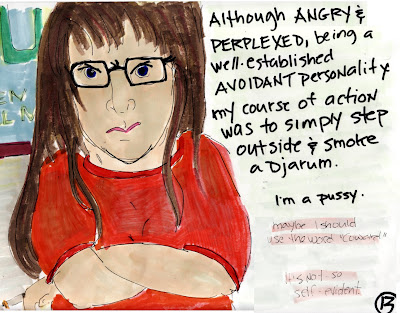 U
EN
LM
Although ANGRY &
PERPLEXED, being a
well-established
AVOIDANT personality
my course of action
was to simply step
outside & smoke
a Djarum.
I'm a pussy.
maybe I should
use the word "coward"
It's not so
self-evident